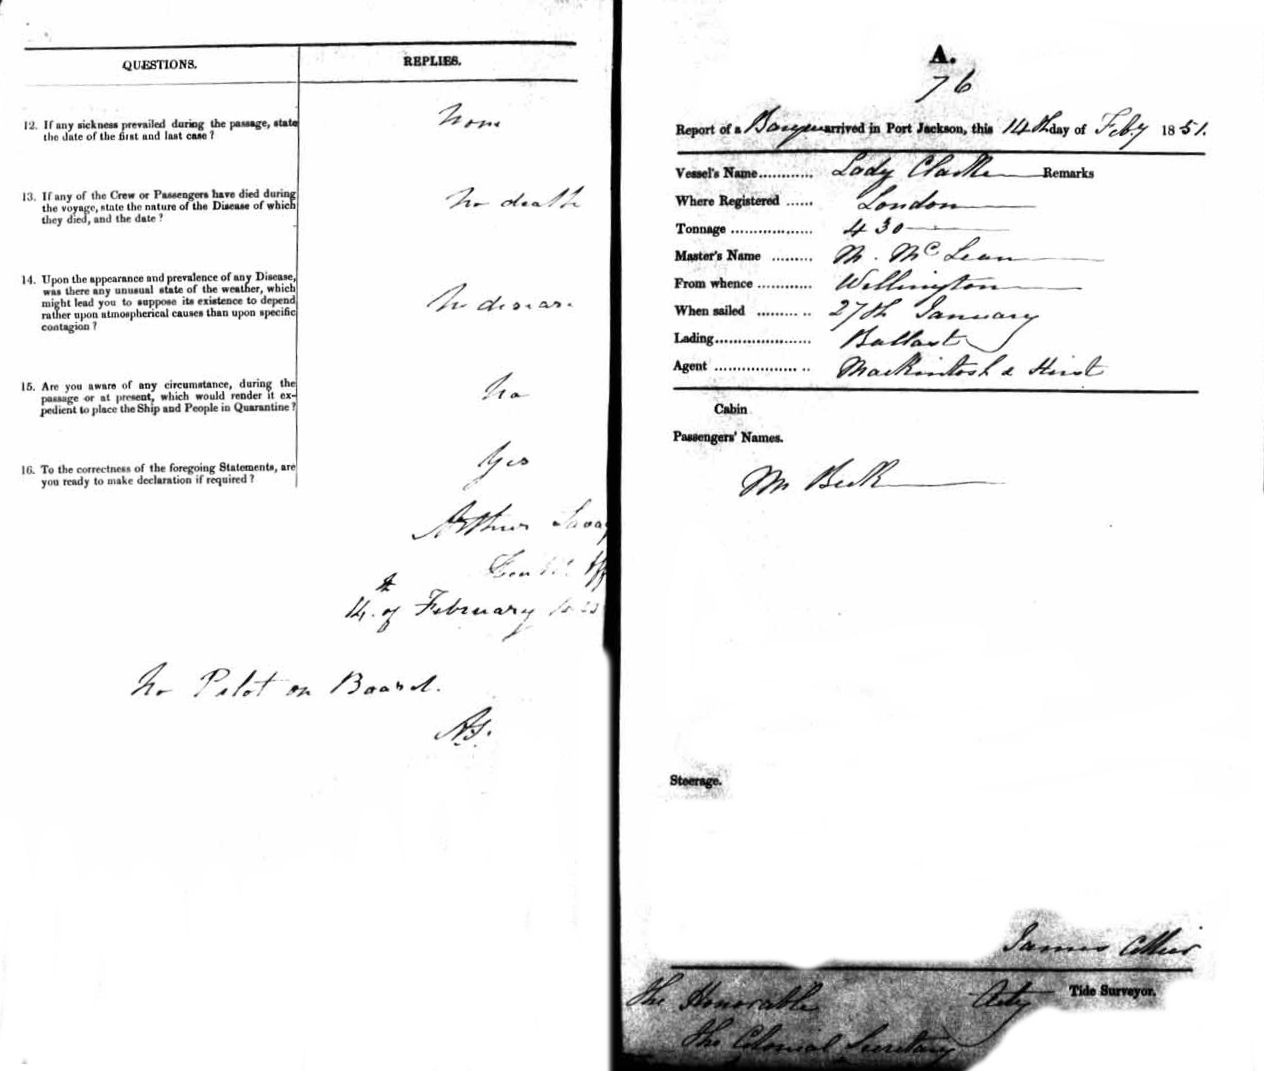 QUESTIONS. REPLIES.
12. If any sickness prevailed during the passage, state
the date of the first and last case ?
None
13. If any of the Crew or Passengers have died during
the voyage, state the nature of the Disease of which
they died, and the date ?
No death
14. Upon the appearance and prevalence of any Disease,
was there any unusual state of the weather, which
might lead you to suppose its existence to depend
rather upon atmospherical causes than upon specific
contagion ?
No disease
15. Are you aware of any circumstance, during the
passage or at present, which would render it ex-
pedient to place the Ship and People in Quarantine ?
No
16. To the correctness of the foregoing Statements, are
you ready to make declaration if required ?
Yes
Arthur Savag
14th of February
No Pilot on Board.
A.S.
A.
76
Report of a Barque arrived in Port Jackson, this 14th day of Feby 1851.
Vessel's Name............ Lady Clarke Remarks
Where Registered ...... London
Tonnage .................. 430
Master's Name ......... M. McLean
From whence ............ Wellington
When sailed ............ 27th January
Lading..................... Ballast
Agent ..................... Mackintosh & Hirst
Cabin
Passengers' Names.
Mr
Steerage.
James
Actg Tide Surveyor.
The Honorable
The Colonial Secretary